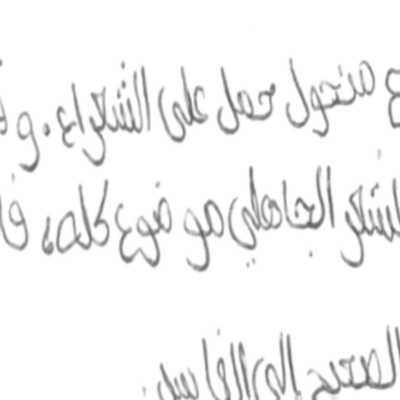 منحول حمل على الشعراء. و
الشعر الجاهلي موضوع كله، فا
الصحيح إلى الفاسد.